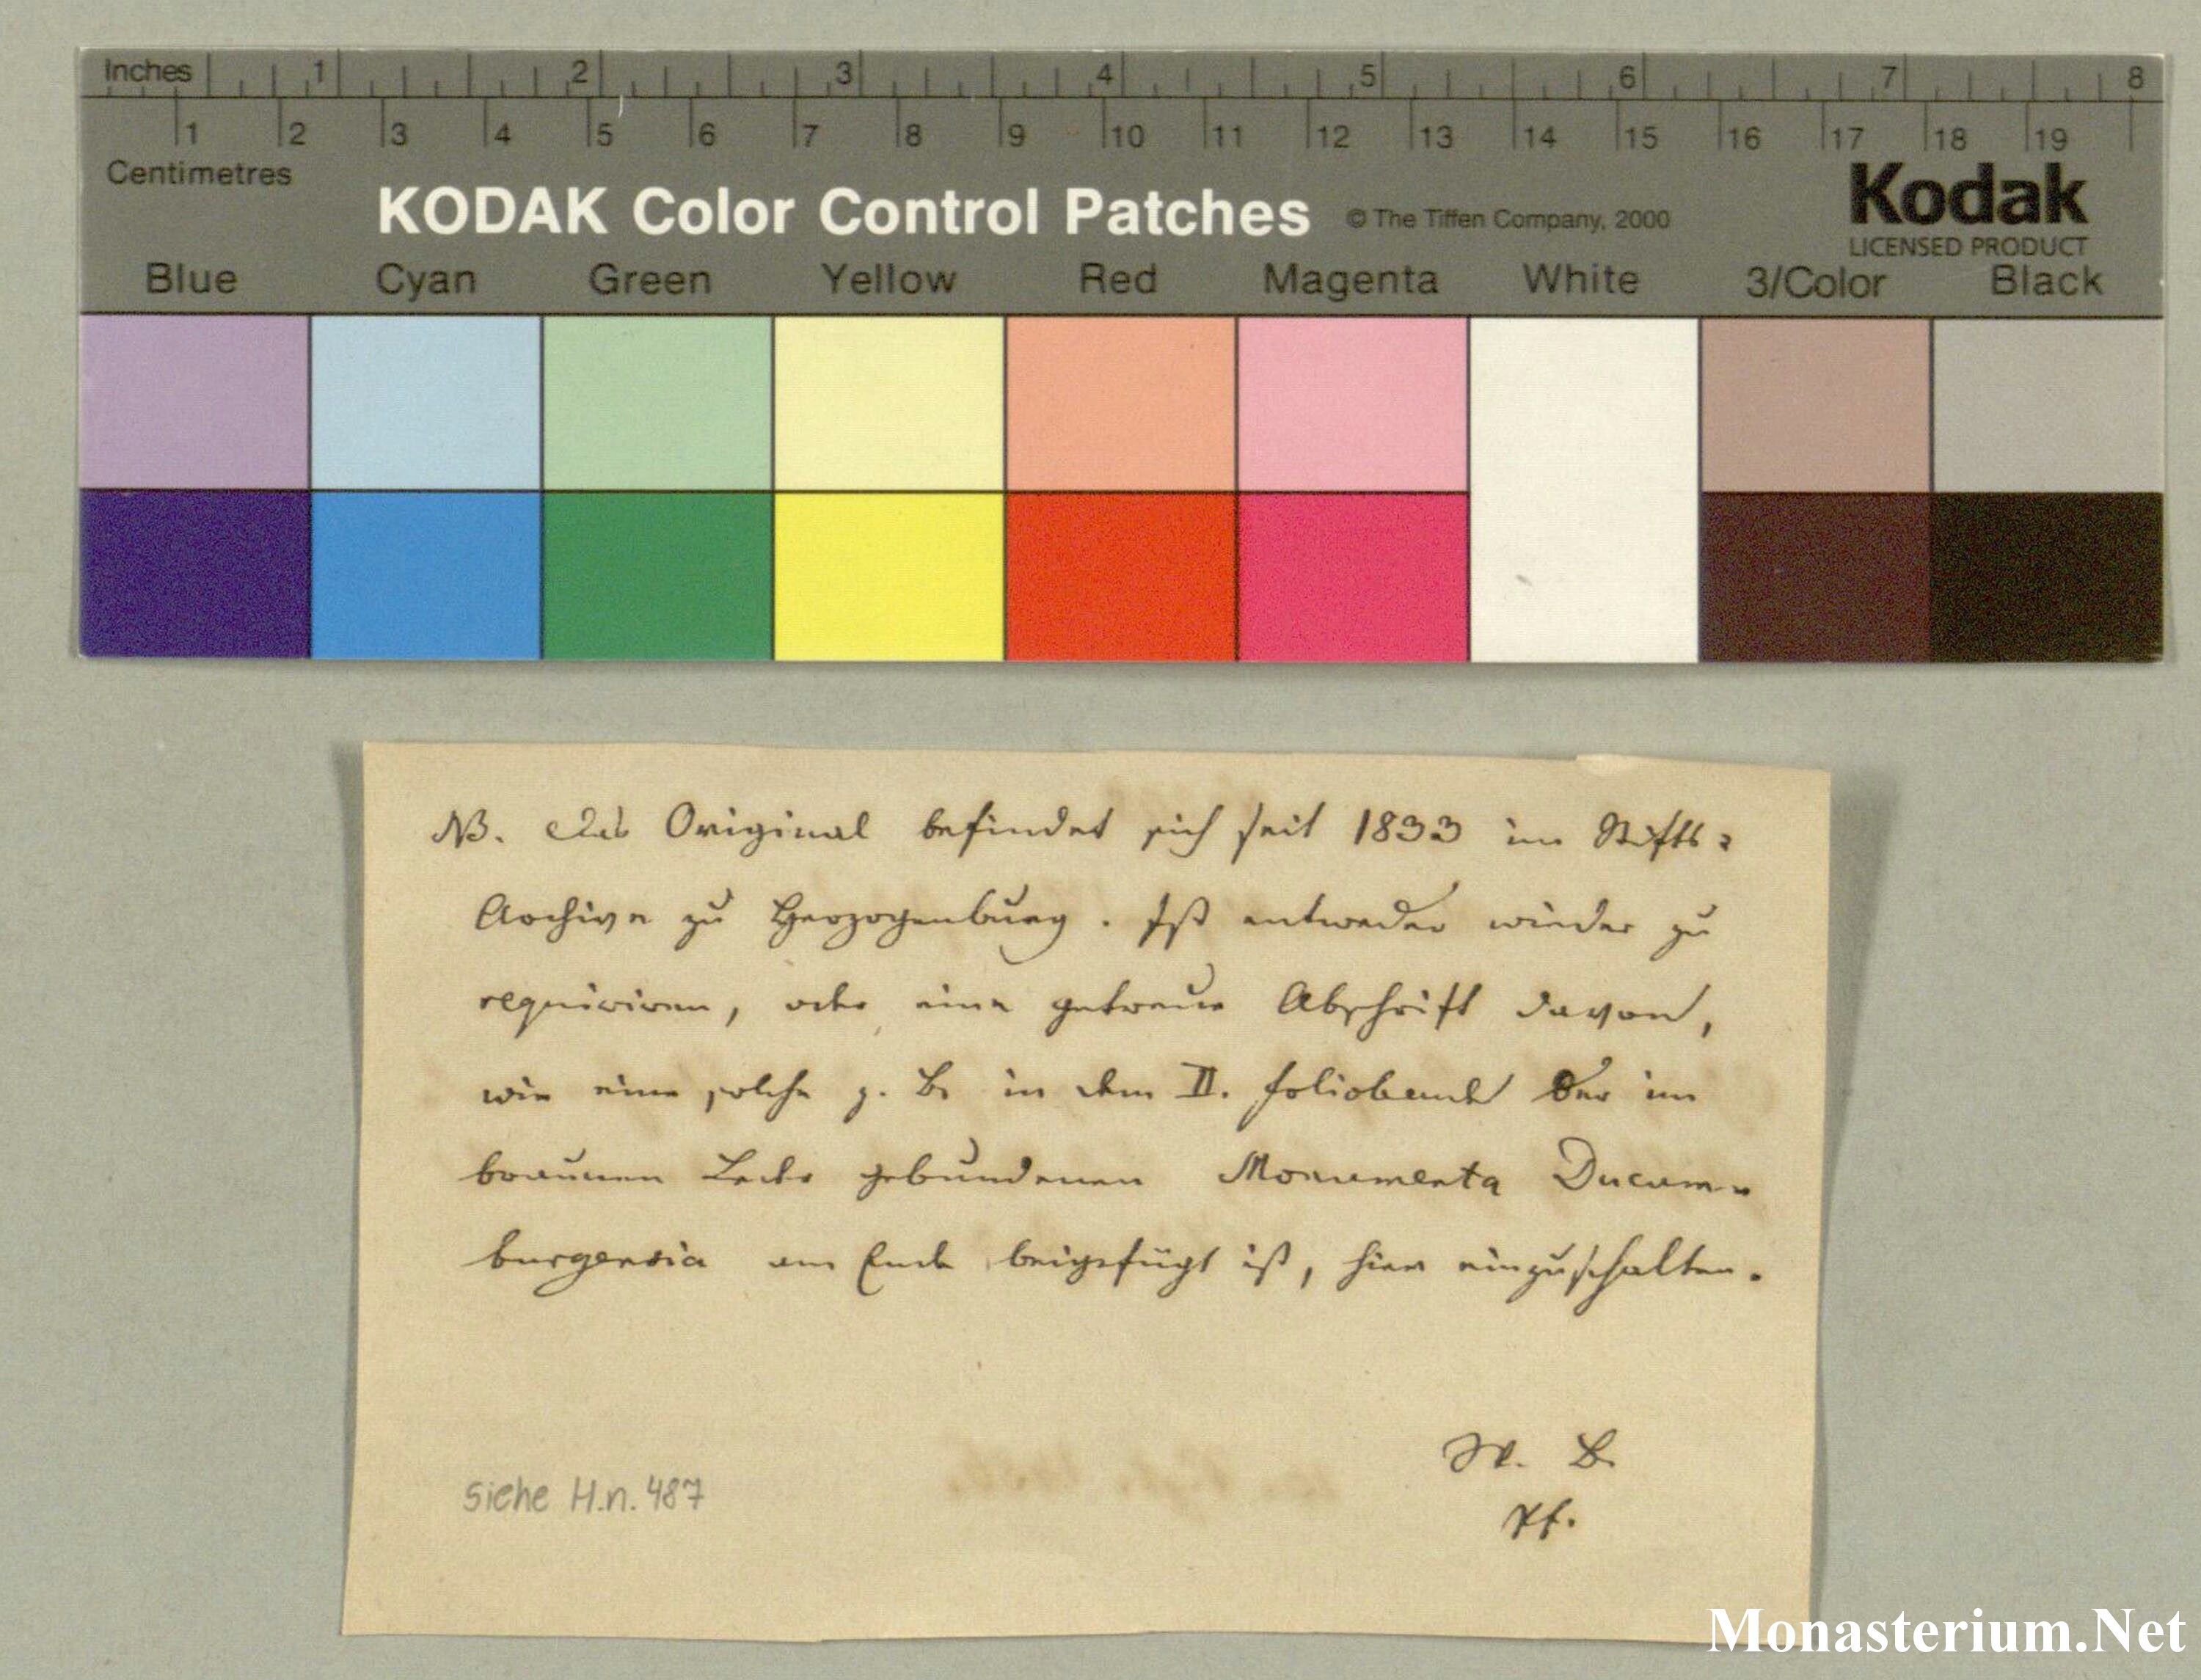 Inches 1 2 3 4 5 6 7 8
1 2 3 4 5 6 7 8 9 10 11 12 13 14 15 16 17 18 19
Centimetres
KODAK Color Control Patches © The Tiffen Company, 2000 Kodak
LICENSED PRODUCT
Blue Cyan Green Yellow Red Magenta White 3/Color Black
NB. Das Original befindet sich seit 1833 im Stifts=
Archive zu Herzogenburg. Ist entweder wieder zu
requiriren, oder eine getreue Abschrift davon,
wie eine solche z. B. in dem II. Foliobande der im
braunen Leder gebundenen Monumenta Ducum=
burgensia am Ende beigefügt ist, hier einzuschalten.
W. B.
Pf.
siehe H.n. 487
Monasterium.Net